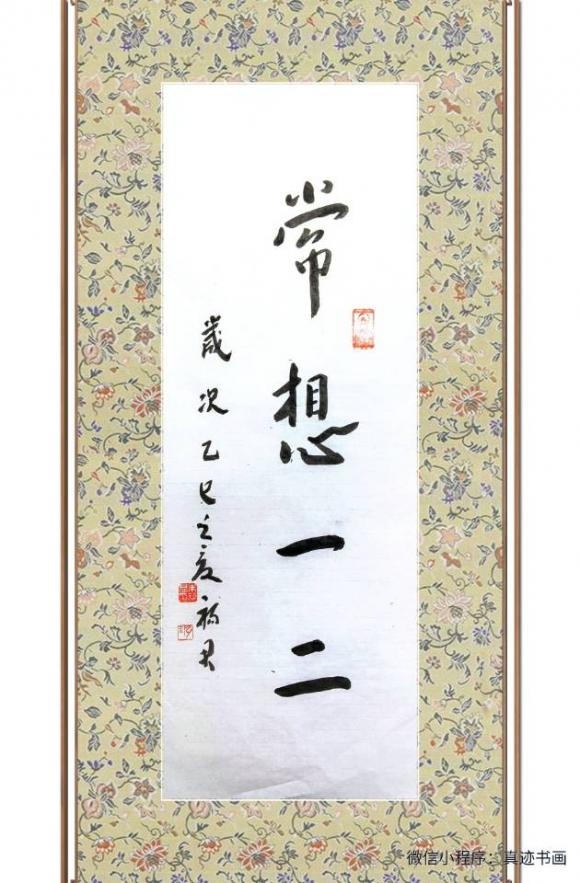 常想一二
歲次乙巳之夏
微信小程序：真迹书画